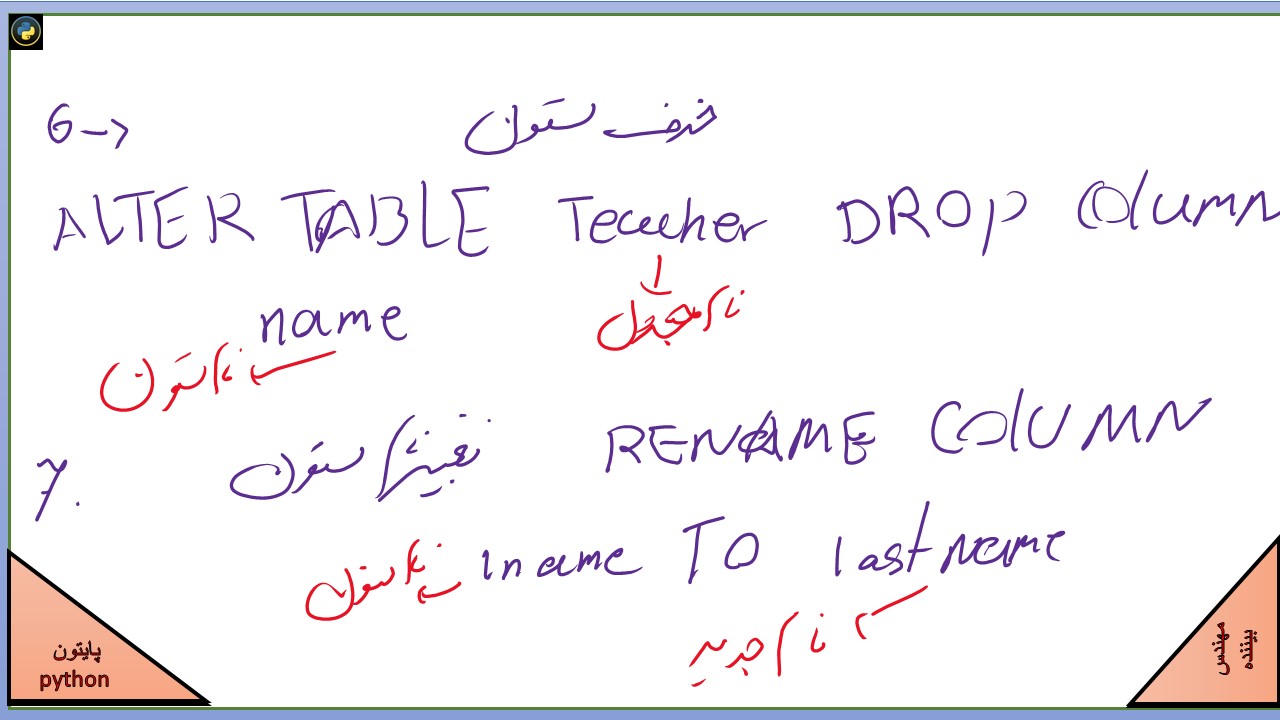 6 →
حذف ستون
ALTER TABLE Teacher DROP COLUMN
name
نام جدول
نام ستون
7. تغییر نام ستون RENAME COLUMN
lname TO lastname
نام ستون
نام جدید
پایتون
python
مهندس
بیننده